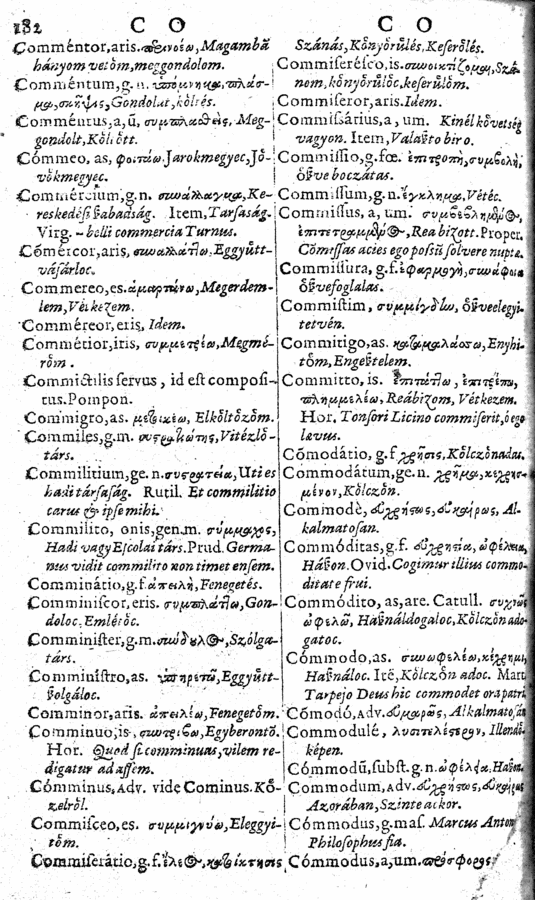 182 C O C O
Comméntor, aris. Magambā
hányom vetȯm, meggondolom.
Comméntum, g. n.
Gondolat, kȯltés.
Comméntus, a, ū, Meg-
gondolt, Kȯlt ȯtt.
Cómmeo, as, φοιτάω, Jarokmegyec, Jȯ-
vȯkmegyec.
Commércium, g. n. Ke-
reskedési ſabadság. Item, Tarſaság.
Virg. - belli commercia Turnus.
Cōmércor, aris, Eggyůtt-
váſárloc.
Commereo, es. ἁμαρτάνω, Megerdem-
lem, Vétkezem.
Commércor, eris, Idem.
Commétior, iris, συμμετρέω, Megmé-
rȯm.
Commictilis servus, id est composi-
tus. Pompon.
Commigro, as. μετοικέω, Elkȯltȯzȯm.
Commiles, g. m. Vitézlȯ-
társ.
Commilitium, ge. n. Uti es
hadi tárſaſág. Rutil. Et commilitio
carus & ipse mihi.
Commilito, onis, gen. m. σύμμαχος,
Hadi vagy Escolai társ. Prud. Germa-
nus vidit commilito non timet ensem.
Comminátio, g. f. ἀπειλὴ, Fenegetés.
Comminiscor, eris. Gon-
doloc, Emlétȯc.
Comminister, g. m. σωύδουλος, Szolga-
társ.
Comminístro, as. ὑπηρετῶ, Eggyůtt-
ſolgáloc.
Comminor, aris. ἀπειλέω, Fenegetȯm.
Comminuo, is, συντρίβω, Egyberontȯ.
Hor. Quod si comminuas, vilem re-
digatur ad assem.
Cómminus, Adv. vide Cominus. Kȯ-
zelrȯl.
Commisceo, es. συμμιγνύω, Eleggyi-
tȯm.
Commiserátio, g. f. ἔλεος,
Szánás, Kȯnyȯrůlés, Keserȯlés.
Commiserésco, is.
nom, kȯnyȯrůlȯc, keserůlȯm.
Commíseror, aris. Idem.
Commissárius, a, um. Kinél kȯvetség
vagyon. Item, Valaſtot biro.
Commissio, g. fœ. ἐπιτροπὴ, συμβολὴ,
ȯſve boczátas.
Commissum, g. n. ἔγκλημα, Vétéc.
Commissus, a, um.
Rea bizott. Proper.
Cōmissas acies ego possū solvere nupta.
Commissura, g. f. ἐφαρμογὴ,
ȯſvefoglalas.
Commistim, ȯſveelegyi-
tetvén.
Commitigo, as. Enyhi-
tȯm, Engeſtelem.
Committo, is. ἐπιτάττω, ἐπιτρέπω,
πλημμελέω, Reábizom, Vétkezem.
Hor. Tonsori Licino commiserit, ȯ ego
lævus.
Cōmodátio, g. f. χρῆσις, Kȯlczȯnadas.
Commodátum, ge. n. χρῆμα, κεχρησ-
μένον, Kȯlczȯn.
Cómmodè, εὐχρήστως, εὐκαίρως, Al-
kalmatosan.
Commóditas, g. f. εὐχρηστία, ὠφέλεια,
Háſon. Ovid. Cogimur illius commo-
ditate frui.
Commódito, as, are. Catull.
ὠφελῶ, Haſnáldogaloc, Kȯlczȯn ado-
gatoc.
Cómmodo, as.
Haſnáloc. Itē, Kȯlczȯn adoc. Mart
Tarpejo Deus hic commodet ora patri.
Cómodó, Adv. Alkalmatosán
Commodulé, λυσιτελέστερον,
képen.
Cómmodū, subst. g. n. ὠφέλεια, Haſon.
Commodum, Adv. εὐχρήστως,
Azorában, Szinte ackor.
Cómmodus, g. mas. Marcus Anton
Philosophus fia.
Cómmodus, a, um. πρόσφορος,